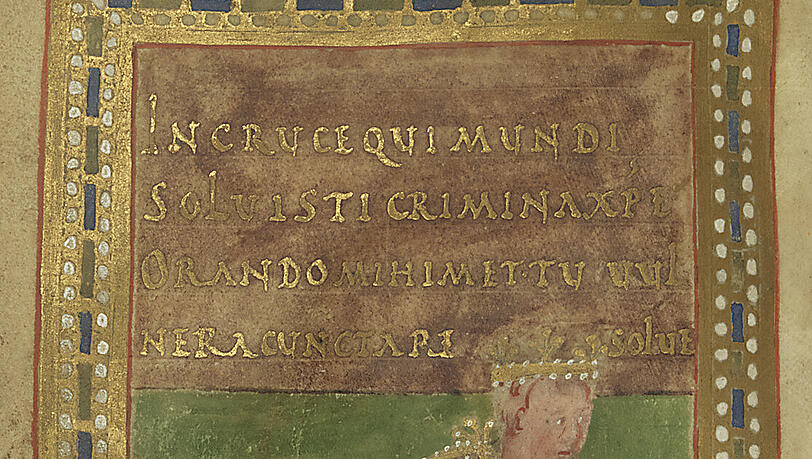 IN CRUCE QUI MUNDI
SOLUISTI CRIMINA XPE
ORANDO MIHIMET·TU UUL
NERA CUNCTA RE SOLUE